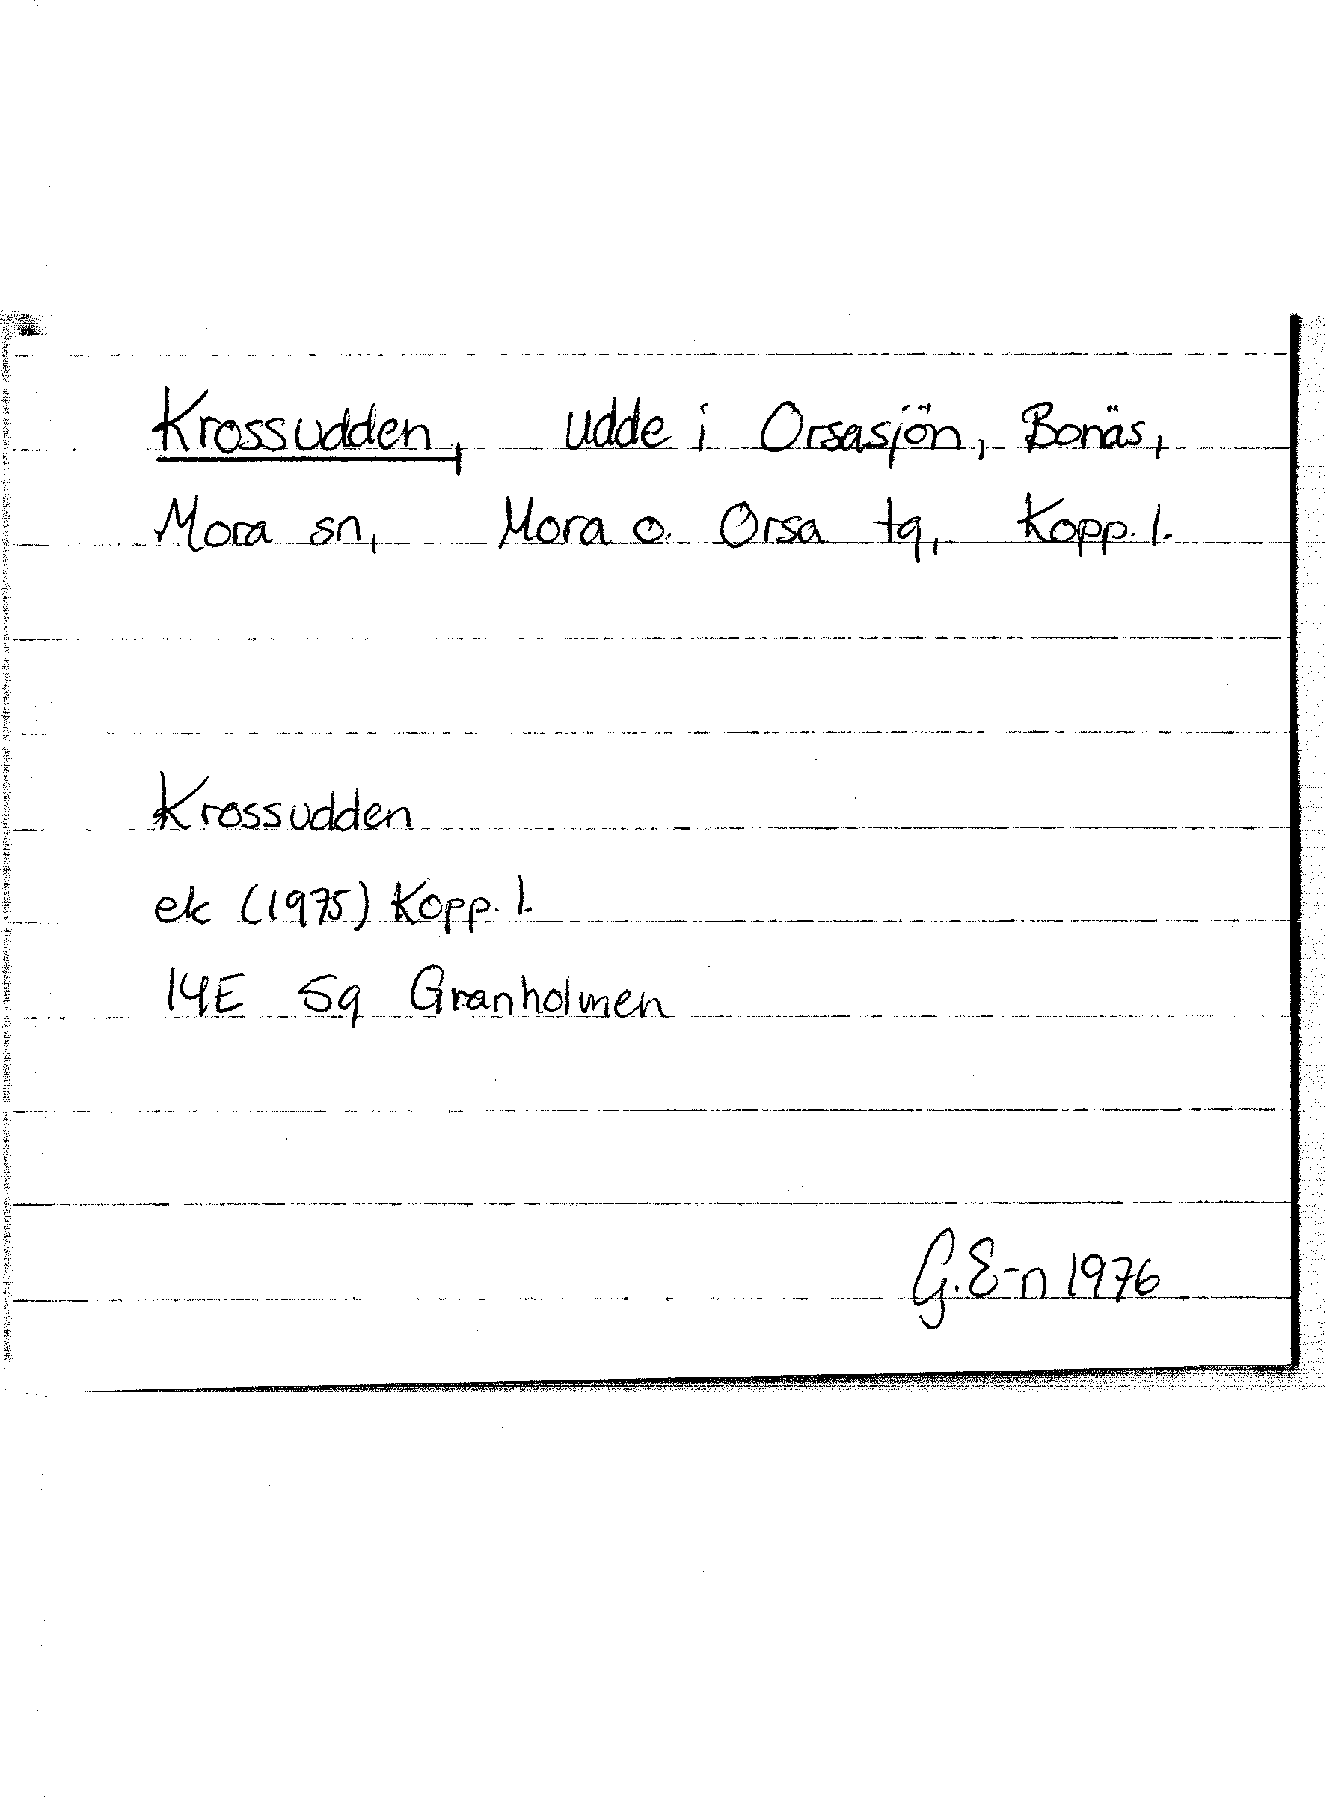 Krossudden, udde i Orsasjön, Bonäs,
Mora sn, Mora o. Orsa tg, Kopp. l.
Krossudden
ek (1975) Kopp. l.
14E 5g Granholmen
G. E-n 1976